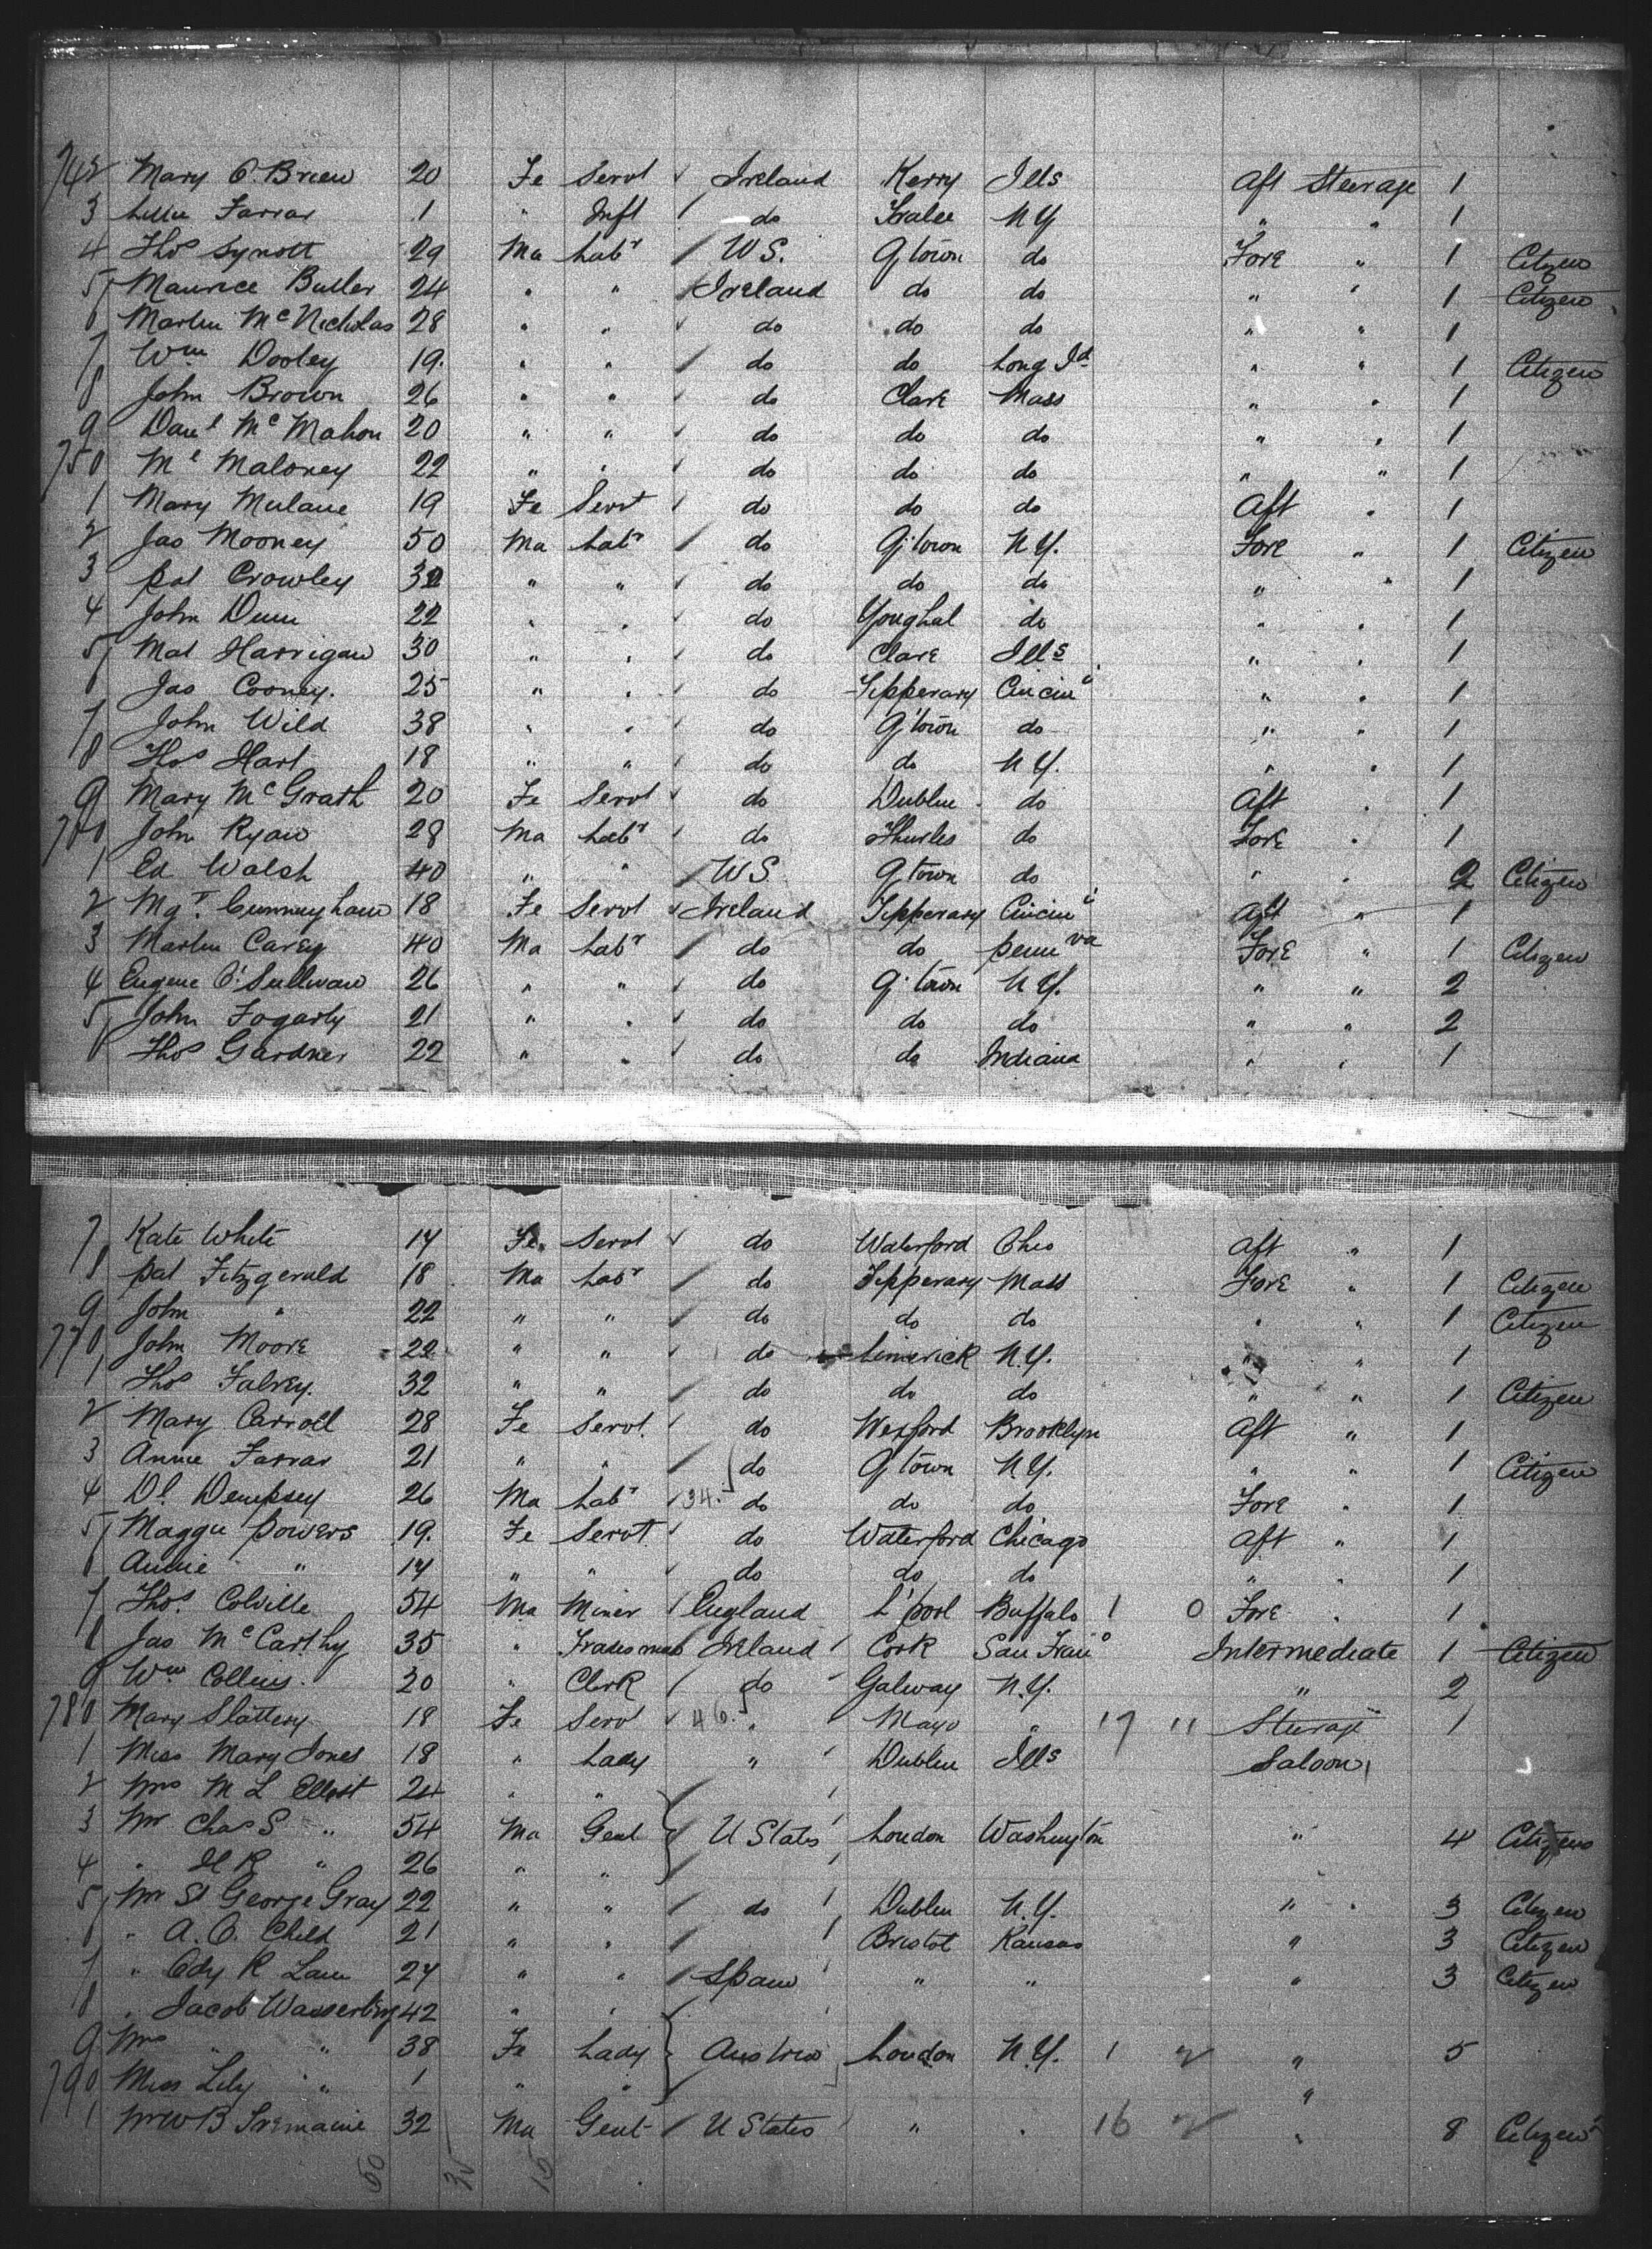 742 Mary O'Brien 20 Fe Servt Ireland Kerry Ills Aft Steerage 1
3 Lillie Farrar 1 " Inft do Tralee N Y " " 1
4 Thos Synott 29 Ma Labr U S. Q town do Fore " 1 Citizen
5 Maurice Butler 24 " " Ireland do do " " 1 Citizen
6 Martin McNicholas 28 " " do do do " " 1
7 Wm Dooley 19. " " do do Long Id " " 1 Citizen
8 John Brown 26 " " do Clare Mass " " 1
9 Danl McMahon 20 " " do do do " " 1
750 Ml Maloney 22 " " do do do " " 1
1 Mary Mulane 19 Fe Servt do do do Aft " 1
2 Jas Mooney 50 Ma Labr do Q'town N Y. Fore " 1 Citizen
3 Pat Crowley 32 " " do do do " " 1
4 John Dunn 22 " " do Youghal do " " 1
5 Mat Harrigan 30 " " do Clare Ills " " 1
6 Jas Cooney. 25 " " do Tipperary Cincino " " 1
7 John Wild 38 " " do Q'town do " " 1
8 Thos Hart 18 " " do do N Y. " " 1
9 Mary McGrath 20 Fe Servt do Dublin do Aft " 1
760 John Ryan 28 Ma Labr do Thurles do Fore " 1
1 Ed Walsh 40 " " U S Q town do " " 2 Citizen
2 Mgt. Cunningham 18 Fe Servt Ireland Tipperary Cincino Aft " 1
3 Martin Carey 40 Ma Labr do do Pennva Fore " 1 Citizen
4 Eugene O'Sullivan 26 " " do Q'town N Y. " " 2
5 John Fogarty 21 " " do do do " " 2
6 Thos Gardner 22 " " do do Indiana " " 1
7 Kate White 14 Fe Servt do Waterford Ohio Aft " 1
8 Pat Fitzgerald 18 Ma Labr do Tipperary Mass Fore " 1 Citizen
9 John " 22 " " do do do " " 1 Citizen
770 John Moore 22 " " do Limerick N.Y. " " 1
1 Thos Falvey. 32 " " do do do " " 1 Citizen
2 Mary Carroll 28 Fe Servt. do Wexford Brooklyn Aft " 1
3 Annie Farrar 21 " " do Q town N Y. " " 1 Citizen
4 Dl. Dempsey 26 Ma Labr 34. do do do Fore " 1
5 Maggie Powers 19. Fe Servt do Waterford Chicago Aft " 1
6 Annie " 14 " " do do do " " 1
7 Thos. Colville 54 Ma Miner England L'pool Buffalo 1 0 Fore " 1
8 Jas McCarthy 35 " Tradesman Ireland Cork San Frano Intermediate 1 Citizen
9 Wm Collins. 20 " Clerk do Galway N.Y. " 2
780 Mary Slattery 18 Fe Servt 46. " Mayo " 17 11 Steerage 1
1 Miss Mary Jones 18 " Lady " Dublin Ills Saloon 1
2 Mrs M L Elliott 24 " "
3 Mr Chas S " 54 Ma Gent U States London Washington " 4 Citizens
4 " H R " 26 " "
5 Mr St George Gray 22 " " do Dublin N.Y. " 3 Citizen
6 " A. O. Child 21 " " Bristol Kansas " 3 Citizen
7 " Edy R 24 " " Spain " " " 3 Citizen
8 " Jacob 42 " "
9 Mrs " " 38 Fe Lady Austria London N.Y. 1 2 " 5
790 Miss Lily " 1 " " "
1 Mr W B Tremaine 32 Ma Gent U States " " 16 2 " 8 Citizen